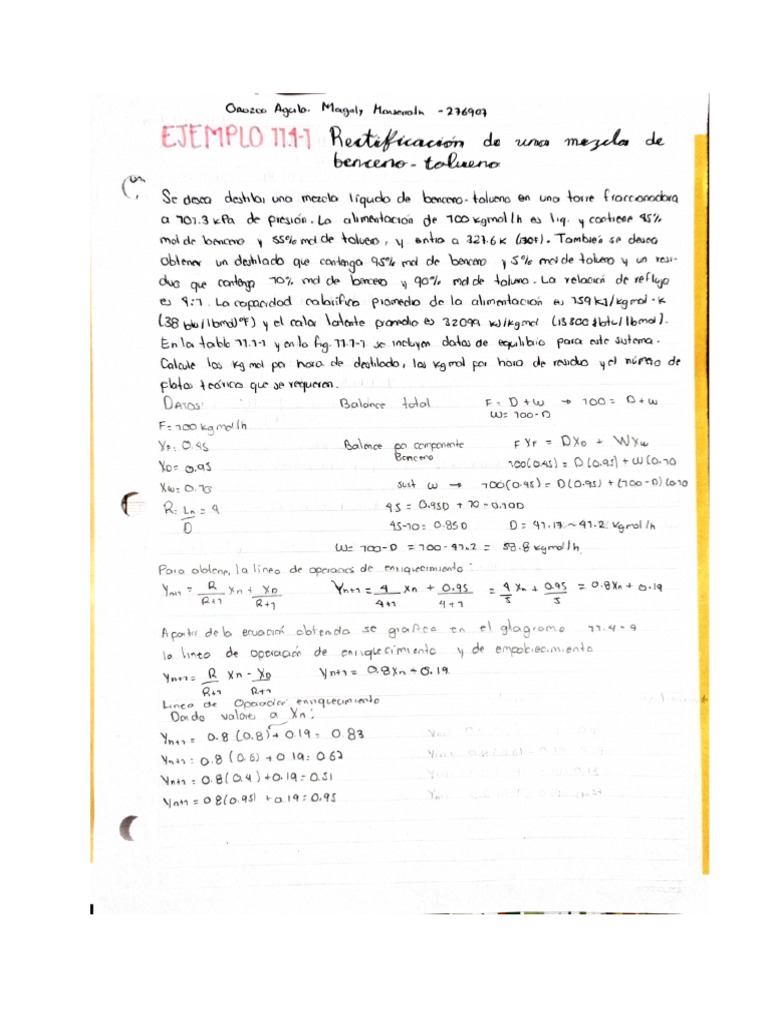 Orozco Agulo. Magaly Monserrath - 276907
EJEMPLO 11.4-1 Rectificación de una mezcla de
benceno-tolueno
Se desea destilar una mezcla líquida de benceno-tolueno en una torre fraccionadora
a 101.3 kPa de presión. La alimentación de 100 kgmol/h es liq. y contiene 45%
mol de benceno y 55% mol de tolueno, y entra a 327.6 K (130F). También se desea
obtener un destilado que contenga 95% mol de benceno y 5% mol de tolueno y un resi-
duo que contenga 10% mol de benceno y 90% mol de tolueno. La relación de reflujo
es 4:1. La capacidad calorífica promedio de la alimentación es 159 kJ/kgmol·K
(38 btu/lbmol°F) y el calor latente promedio es 32099 kJ/kgmol (13800 btu/lbmol).
En la tabla 11.1-1 y en la fig. 11.1-1 se incluyen datos de equilibrio para este sistema.
Calcule los kg mol por hora de destilado, los kgmol por hora de residuo y el número de
platos teóricos que se requieren.
DATOS: Balance total F = D + W → 100 = D + W
W = 100 - D
F = 100 kgmol/h
XF = 0.45 Balance por componente F XF = DXD + WXW
Benceno
XD = 0.95 100(0.45) = D(0.95) + W(0.10
XW = 0.10 sust W → 100(0.45) = D(0.95) + (100-D)(0.10
R = Ln = 4 45 = 0.95D + 10 - 0.10D
D 45-10 = 0.85D D = 41.17 ~ 41.2 kgmol/h
W = 100 - D = 100 - 41.2 = 58.8 kgmol/h
Para obtener la línea de operaciones de enriquecimiento:
Yn+1 = R Xn + XD Yn+1 = 4 Xn + 0.95 = 4 Xn + 0.95 = 0.8Xn + 0.19
R+1 R+1 4+1 4+1 5 5
A partir de la ecuación obtenida se grafica en el diagrama 11.4-4
la línea de operación de enriquecimiento y de empobrecimiento
Yn+1 = R Xn - XD Yn+1 = 0.8Xn + 0.19
R+1 R+1
Línea de Operación enriquecimiento
Dando valores a Xn:
Yn+1 = 0.8 (0.8) + 0.19 = 0.83
Yn+1 = 0.8 (0.6) + 0.19 = 0.67
Yn+1 = 0.8 (0.4) + 0.19 = 0.51
Yn+1 = 0.8 (0.95) + 0.19 = 0.95